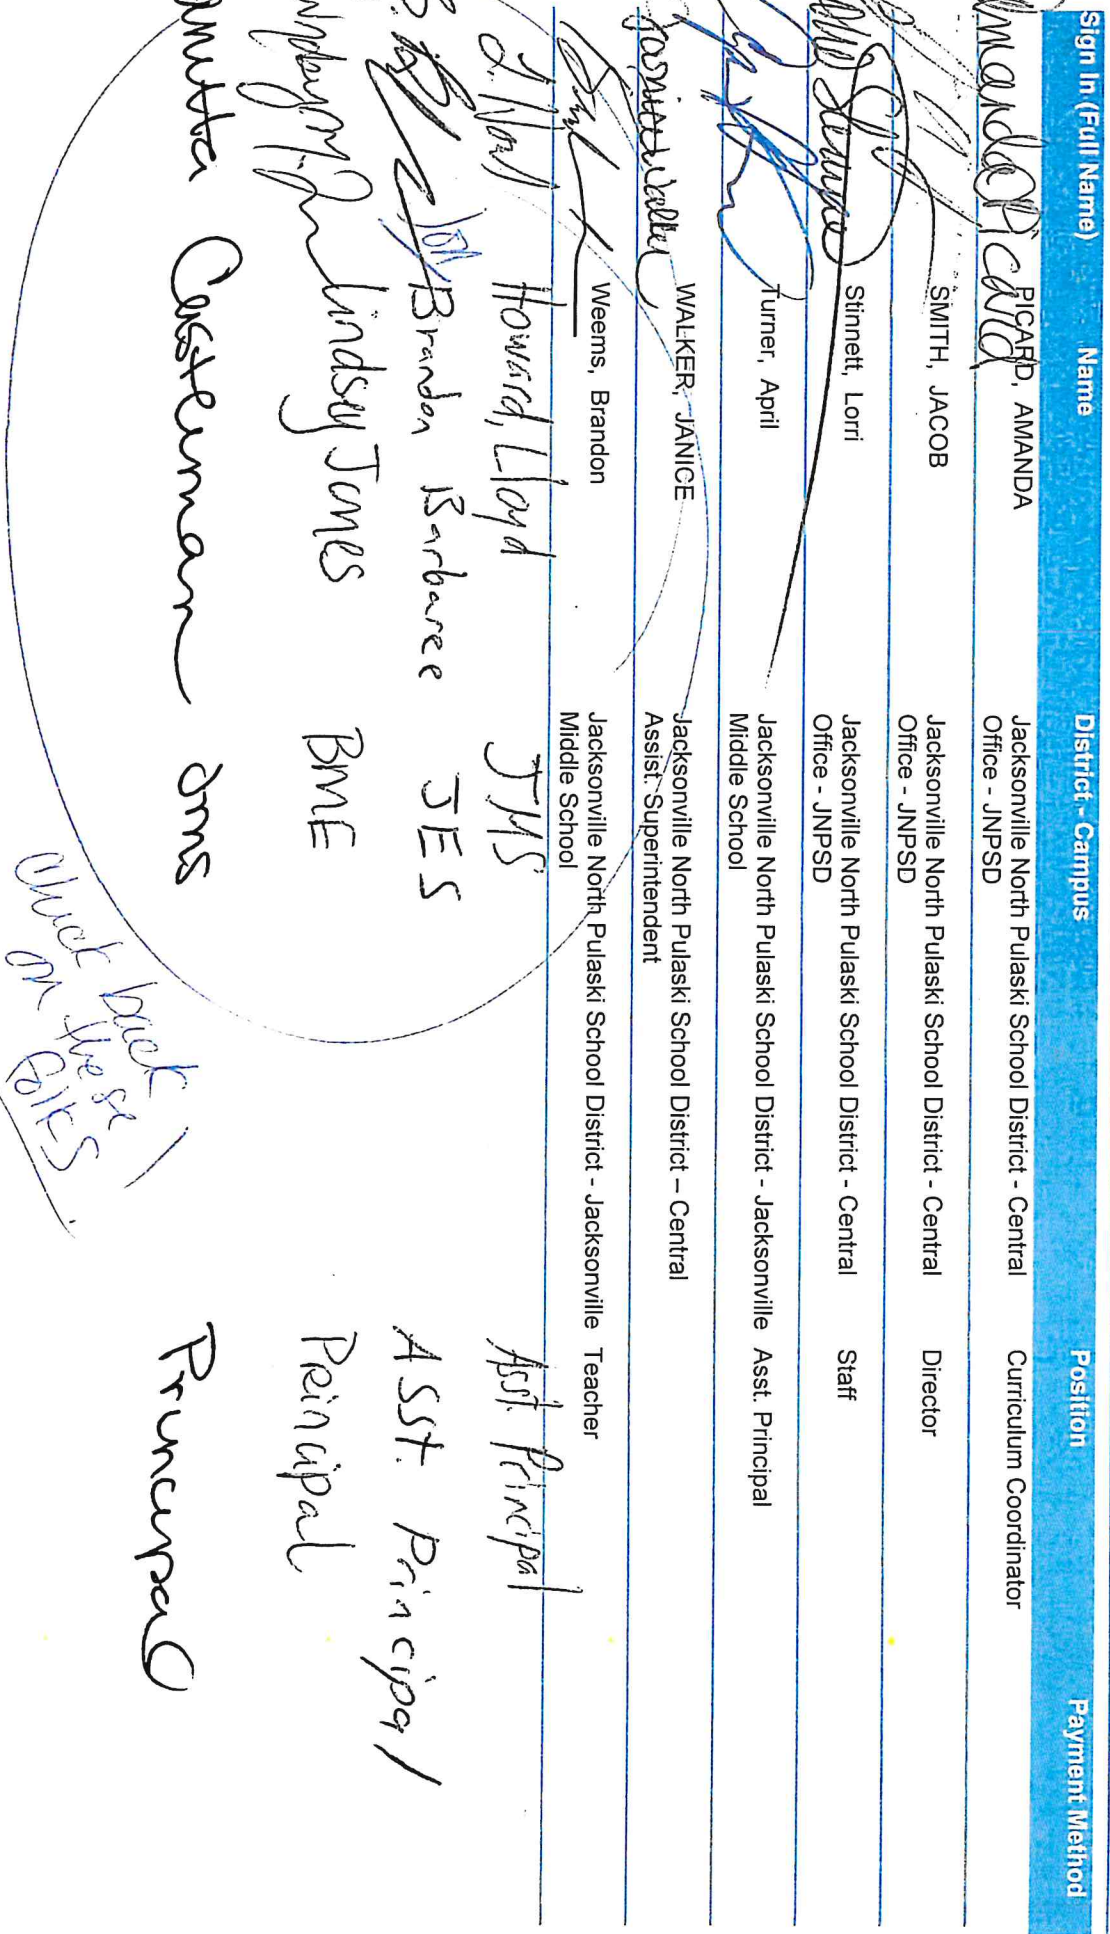 Sign In (Full Name) Name District - Campus Position Payment Method
Amanda Picard PICARD, AMANDA Jacksonville North Pulaski School District - Central Curriculum Coordinator
Office - JNPSD
SMITH, JACOB Jacksonville North Pulaski School District - Central Director
Office - JNPSD
Stinnett, Lorri Jacksonville North Pulaski School District - Central Staff
Office - JNPSD
Turner, April Jacksonville North Pulaski School District - Jacksonville Asst. Principal
Middle School
WALKER, JANICE Jacksonville North Pulaski School District – Central
Assist. Superintendent
Weems, Brandon Jacksonville North Pulaski School District - Jacksonville Teacher
Middle School
Howard, Lloyd JMS Asst. Principal
Brandon Barbaree JES Asst. Principal
Lindsey Jones BME Principal
Castleman Jms Principal
Check back
on these
folks